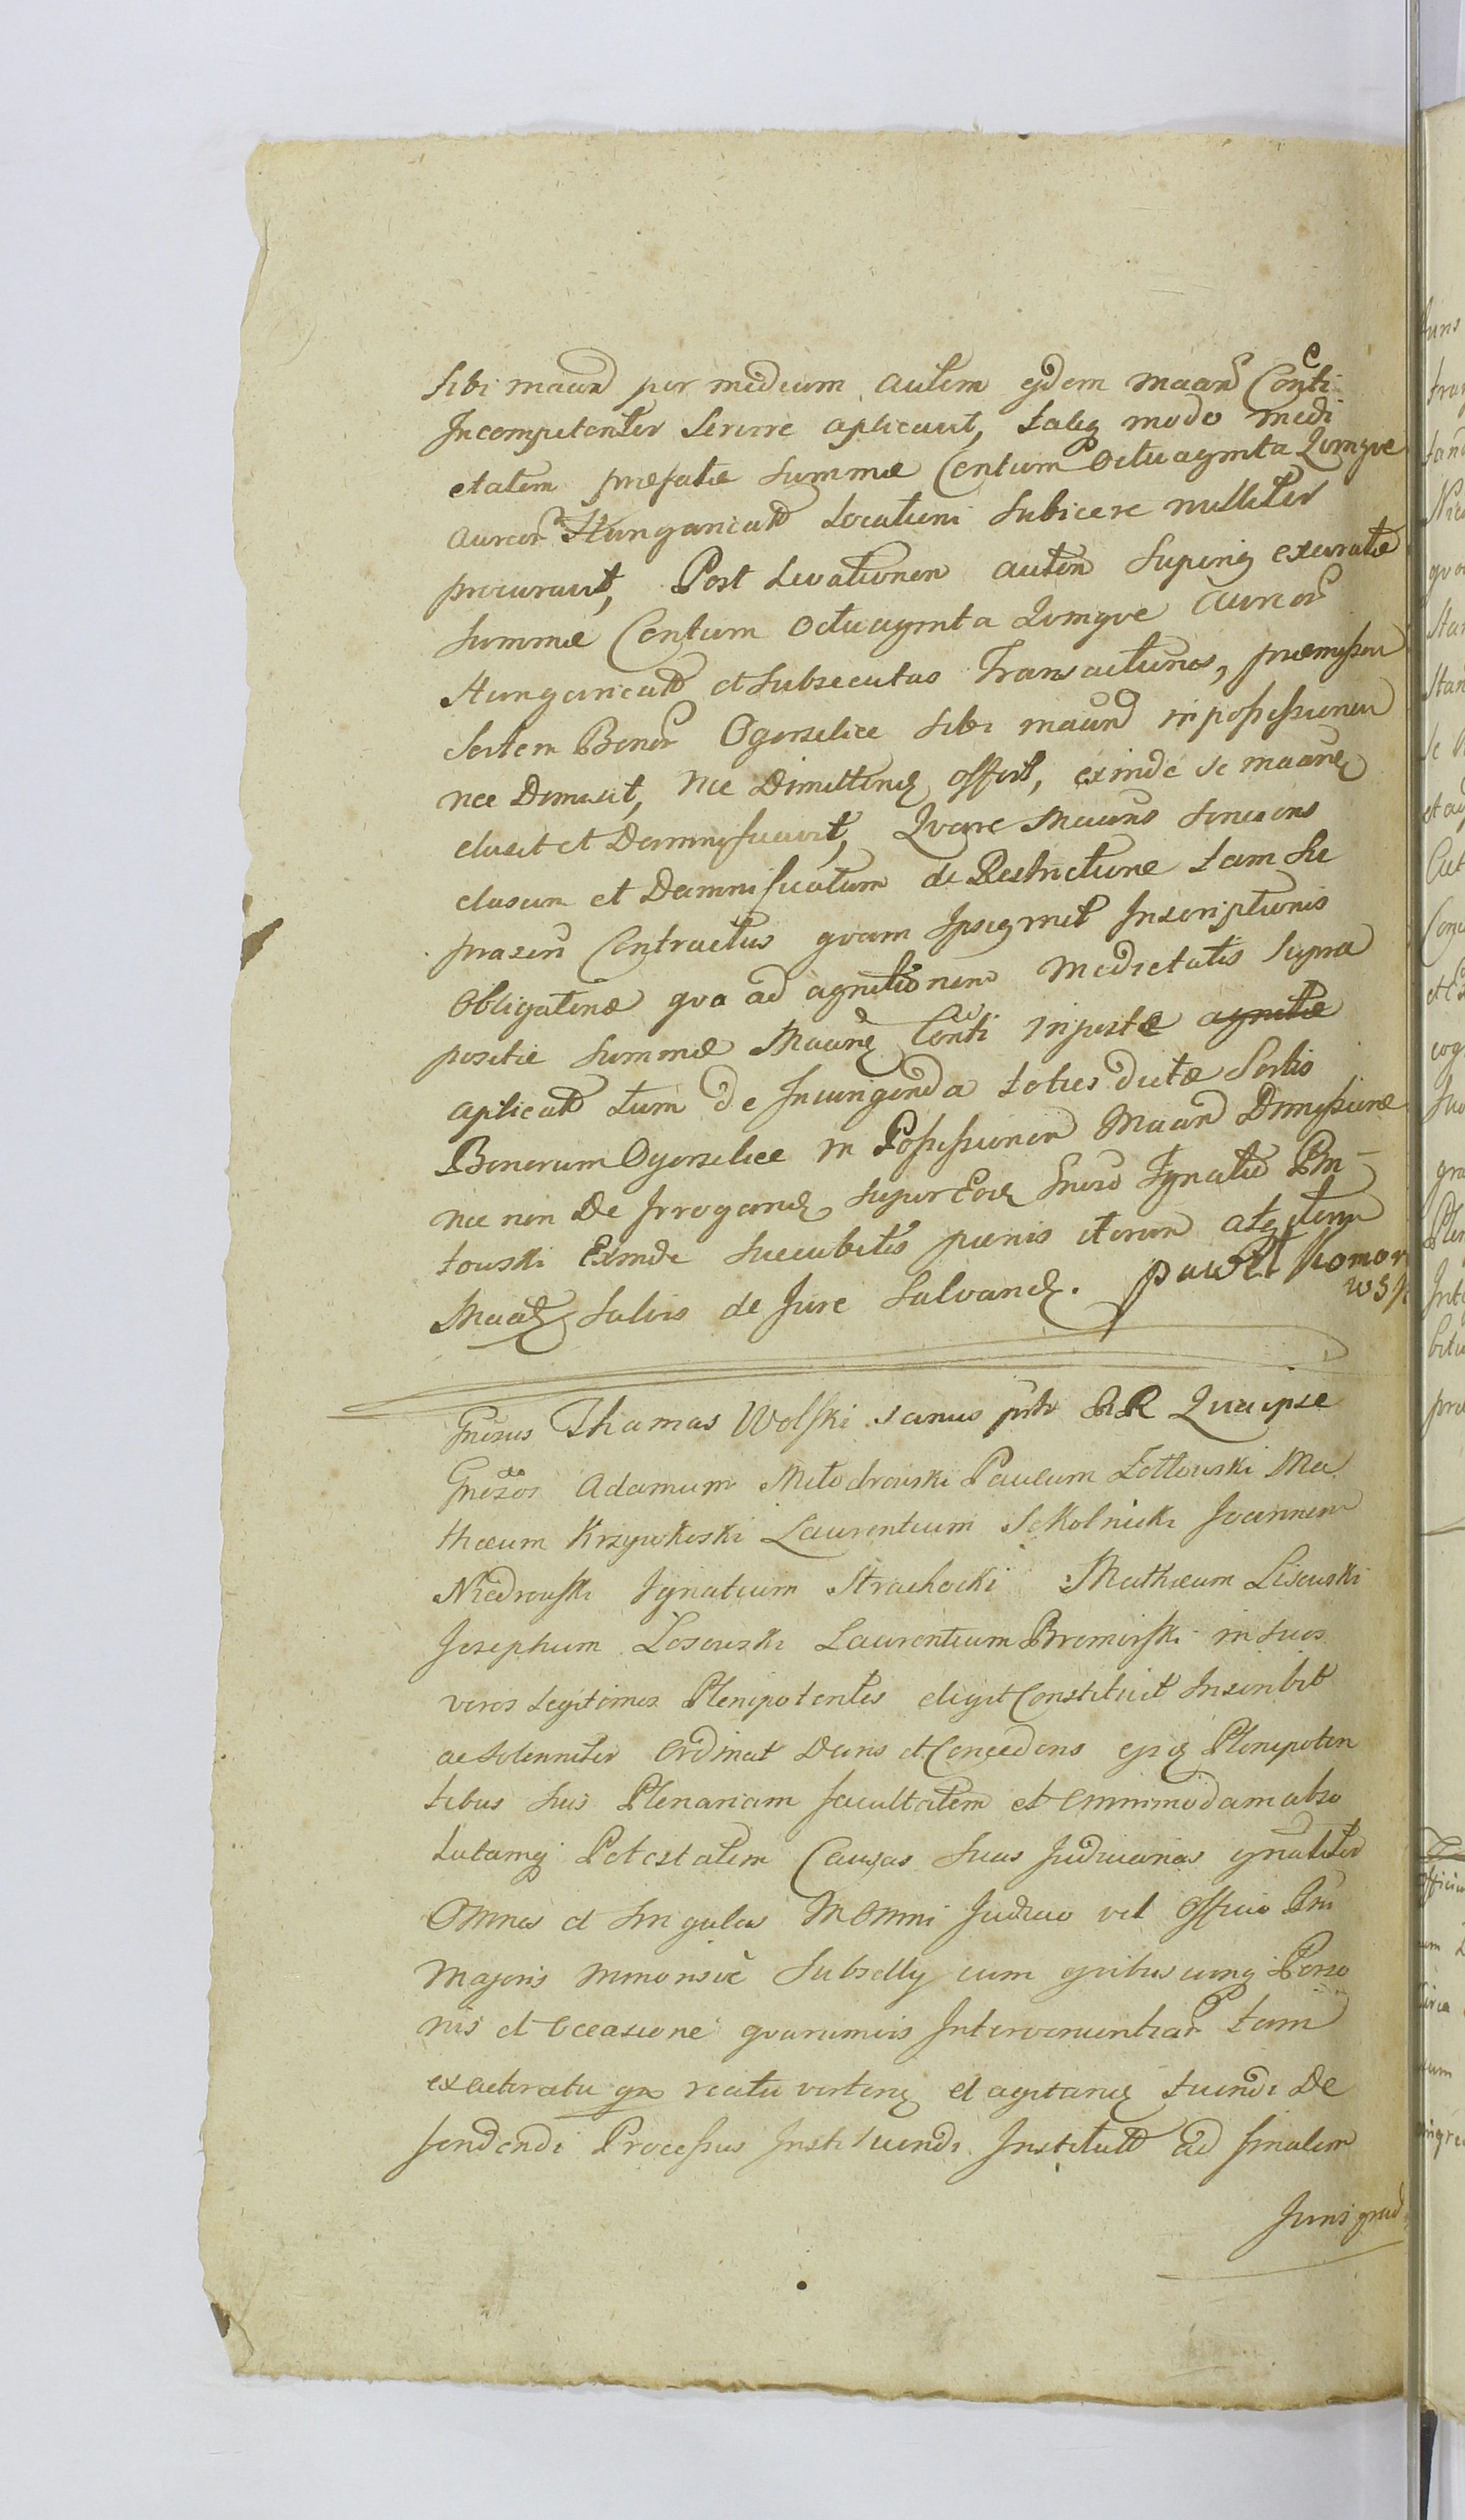 sibi maand per medium autem ejdem maand Conti
Incompetenter servire aplicavit, taliq modo medi
etatem præfatæ summæ Centum Octuaginta Qvinqve
Aureor Hungaricald Locationi subicere nulliter
procuravit, Post Levationem autem superiq exevratæ
summæ Centum Octuaginta Qvinqve Aureor
Hungaricald et subsecutas Transactiones, præmissam
Sortem Bonor Ogorzelice sibi maand in possessionem
nec Dimisit, nec Dimittend offert, exinde se maand
elusit et Damnificavit, Qvare Maans
elusum et Damnificatum de Restrictione tam
Contractus qvam Inscriptionis
Obligatoriæ qva ad agnitionem Medietatis supra
positæ summæ Maand Conti injustæ agnitæ
aplicald tum de Injungenda toties dictæ Sortis
Bonorum Ogorzelice in Possessionem Maand Dimissione
nec non De Irrogand super Eod Gnroso Ignatio Pin
towski Exinde succubitis pænis iterum atq iterum
Maad salvis de Jure salvand. Paweł Komor
wsk
Gnrosus Thamas Wolski sanus RR Qvia ipse
Gnrosos Adamum Młodrowski Paulum Zottowski Ma
thæum Krzywkoski Laurentium Sokolnicki Joannem
Niedrowski Ignatium Strachocki Mathæum Lisowski
Josephum Losowski Laurentium Bromirski in suos
veros Legitimos Plenipotentes eligit Constituit Inscribit
ac solenniter Ordinat Dans et Concedens ejsq Plenipoten
tibus suis Plenariam facultatem et omnimodam abso
lutamq Potestatem Causas suas Judiciarias gnraliter
Omnes et singulas in Omni Judicio vel Officio
Majoris minorisve Subselly cum qvibuscunq Perso
nis et Occasione qvarumvis Intervenientiar tam
ex actoratu qva reatu verten et agitand tuendi De
fendendi Processus Instituendi Institutd ad finalem
Juris grad